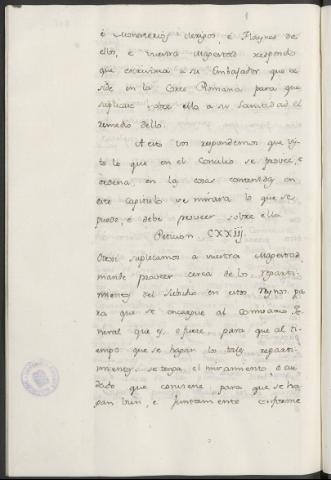 é Monasterios, clerigos, é Flayres de
ellos, é vuestra Magestad respondio
que escriviria a su Embajador que re
side en la Corte Romana para que
suplicase sobre ello a su Santidad el
remedio dello.
A esto vos respondemos que vis
to lo que en el Concilio se provee, e
ordena, en las cosas contenidas en
este capitulo se mirara lo que se
puede, é debe proveer sobre ella
Peticion CXXiij
Otrosi suplicamos a vuestra Magestad
mande proveer cerca de los reparti
mientos del Subsidio en estos Reynos, pa
ra que se encargue al Comisario Ge
neral que es, o fuere, para que al ti
empo que se hagan los tales reparti
mientos se tenga el miramiento, o cui
dado que conviene para que se ha
gan bien, e juntamente conforme